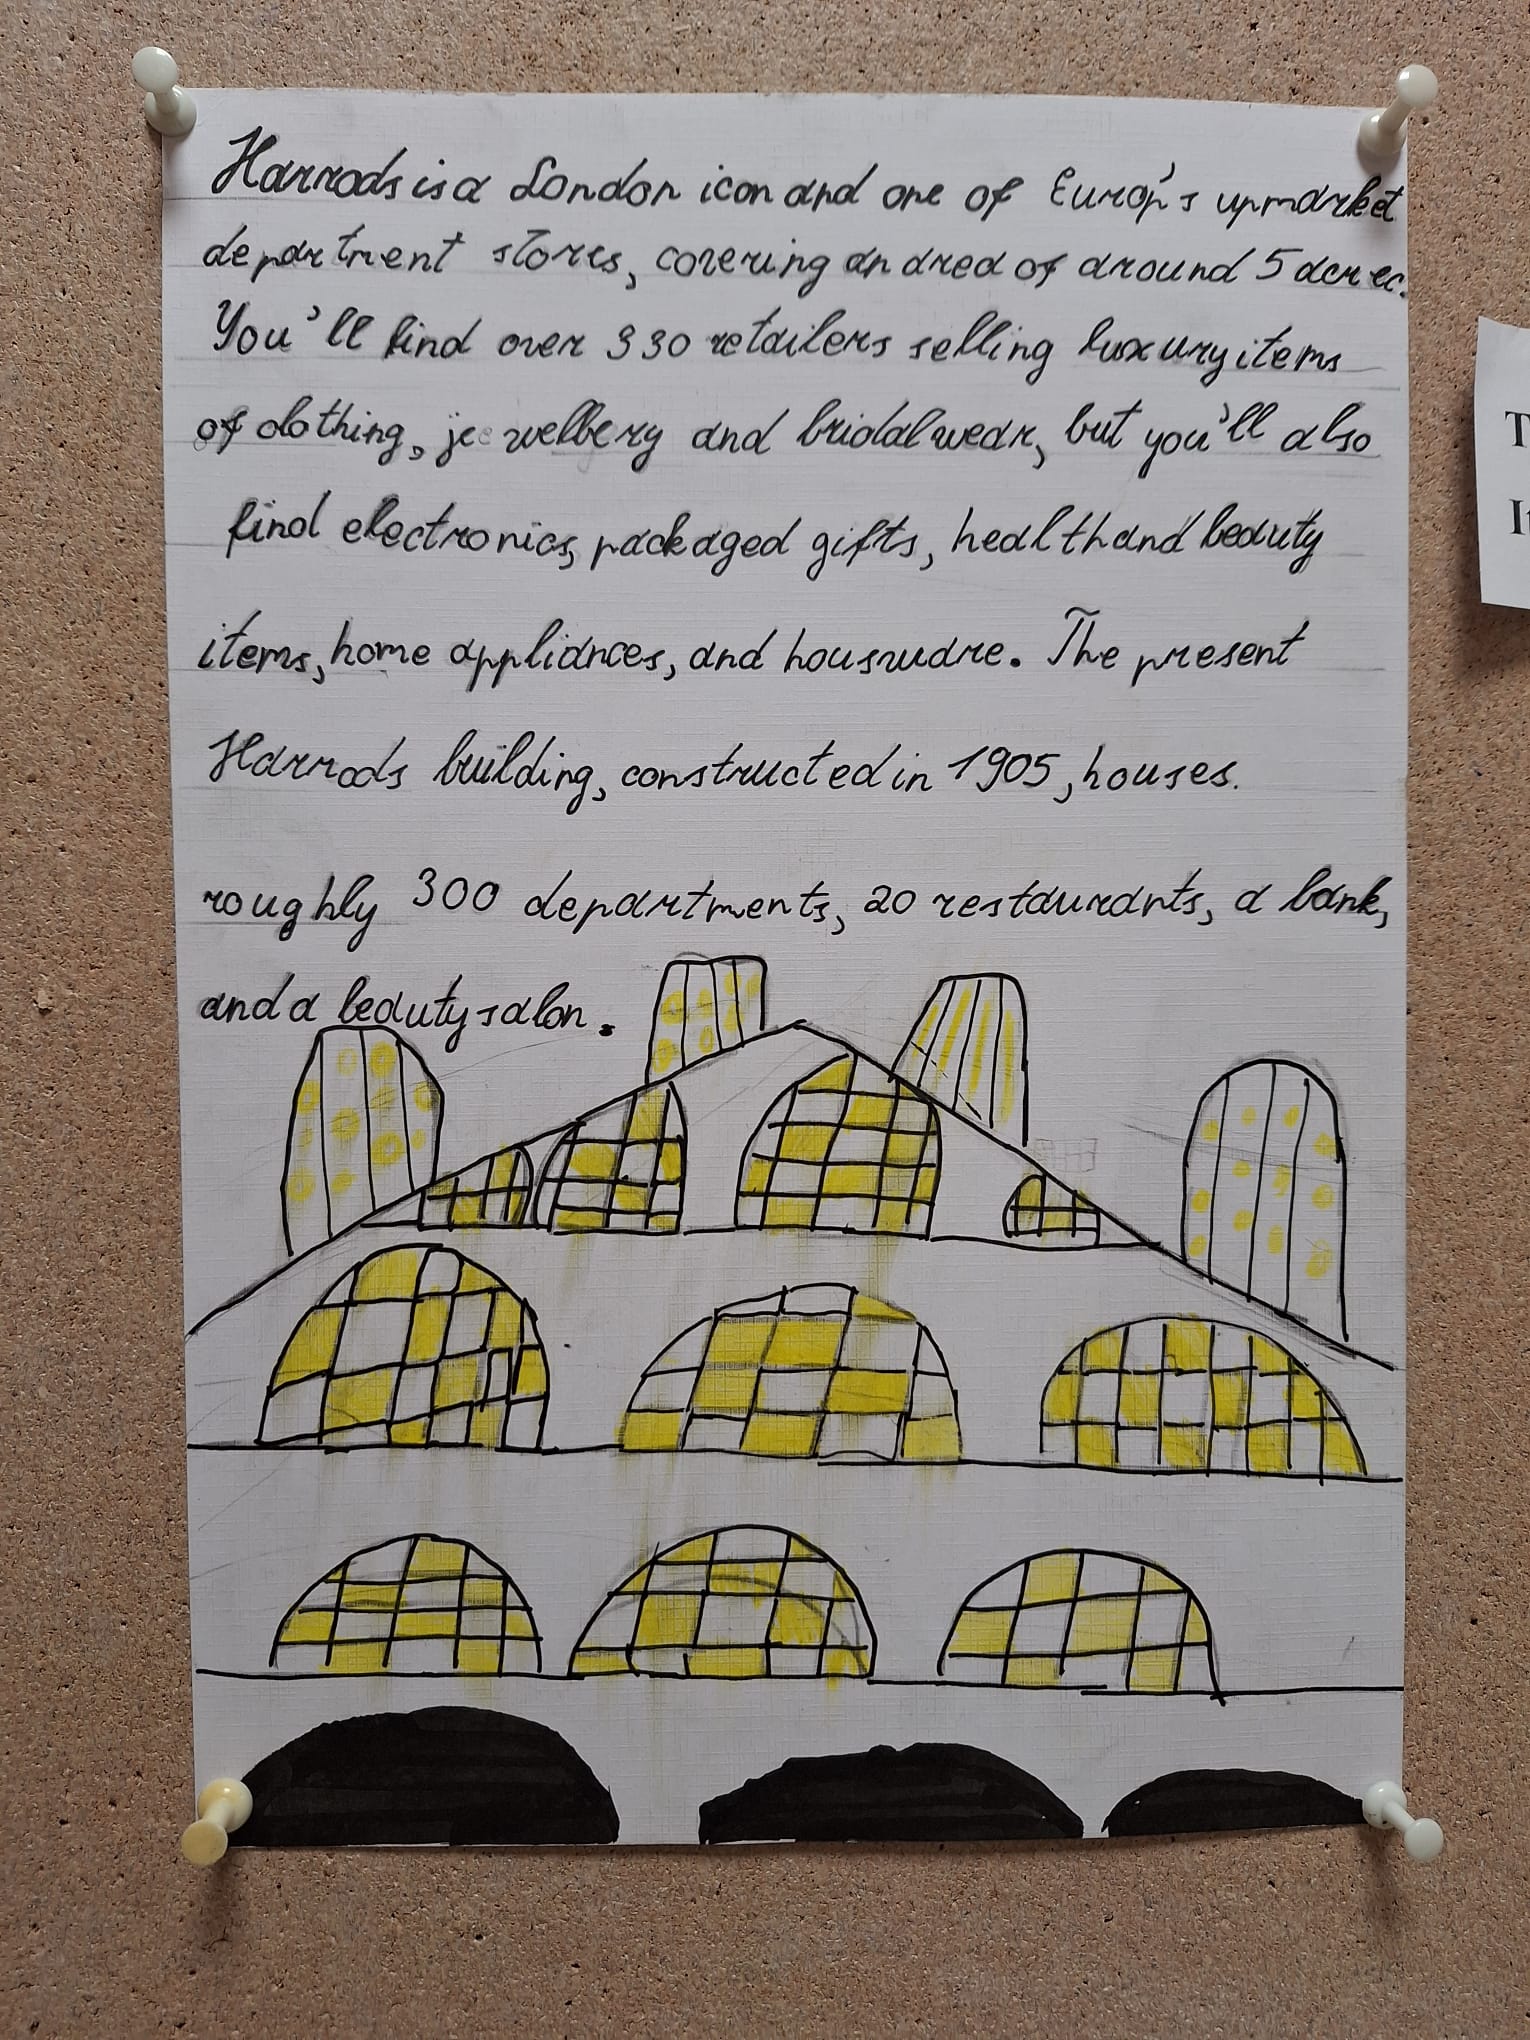 Harrods is a London icon and one of Europ's upmarket
department stores, covering an area of around 5 acrec.
You'll find over 330 retailers selling luxury items
of clothing, jewellery and bridal wear, but you'll also
find electronics, packaged gifts, health and beauty
items, home appliances, and houswware. The present
Harrods building, constructed in 1905, houses.
roughly 300 departments, 20 restaurants, a bank,
and a beauty salon.
T
It